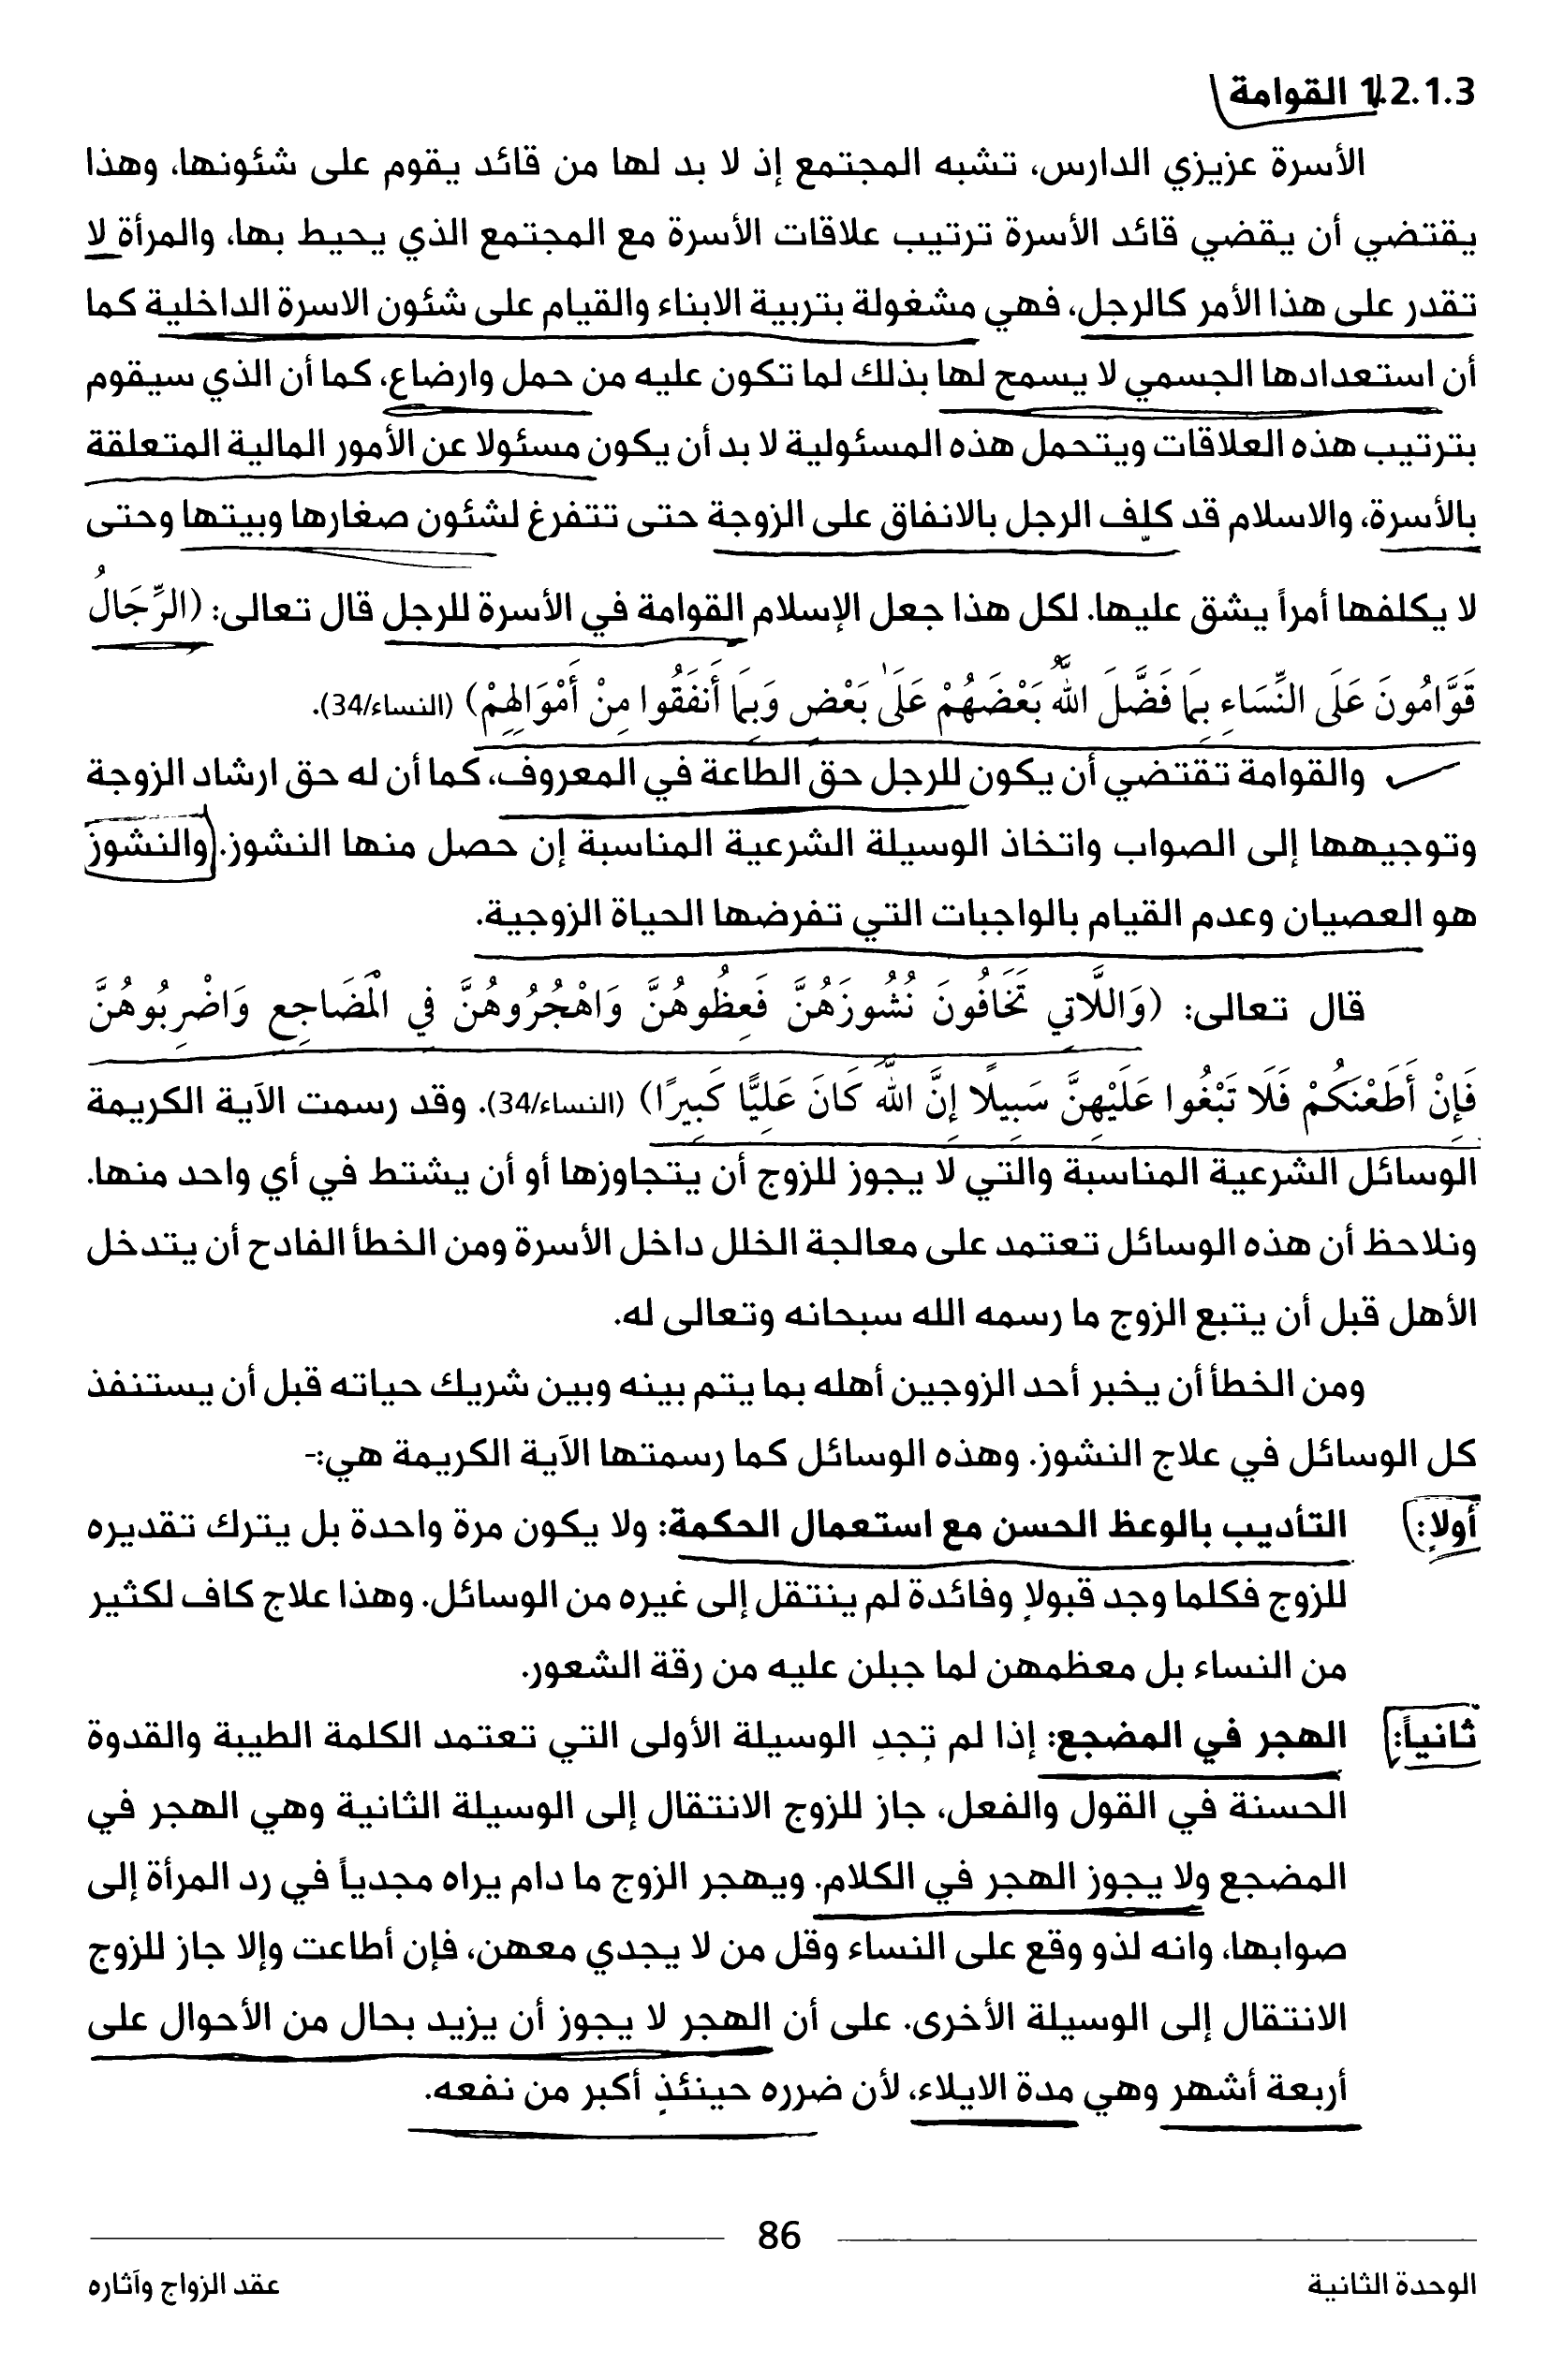 1.2.1.3 القوامة
الأسرة عزيزي الدارس، تشبه المجتمع إذ لا بد لها من قائد يقوم على شئونها، وهذا
يقتضي أن يقضي قائد الأسرة ترتيب علاقات الأسرة مع المجتمع الذي يحيط بها، والمرأة لا
تقدر على هذا الأمر كالرجل، فهي مشغولة بتربية الابناء والقيام على شئون الاسرة الداخلية كما
أن استعدادها الجسمي لا يسمح لها بذلك لما تكون عليه من حمل وارضاع، كما أن الذي سيقوم
بترتيب هذه العلاقات ويتحمل هذه المسئولية لا بد أن يكون مسئولا عن الأمور المالية المتعلقة
بالأسرة، والاسلام قد كلف الرجل بالانفاق على الزوجة حتى تتفرغ لشئون صغارها وبيتها وحتى
لا يكلفها أمراً يشق عليها. لكل هذا جعل الإسلام القوامة في الأسرة للرجل قال تعالى: (الرِّجَالُ
قَوَّامُونَ عَلَى النِّسَاءِ بِمَا فَضَّلَ اللَّهُ بَعْضَهُمْ عَلَىٰ بَعْضٍ وَبِمَا أَنفَقُوا مِنْ أَمْوَالِهِمْ) (النساء/34).
والقوامة تقتضي أن يكون للرجل حق الطاعة في المعروف، كما أن له حق ارشاد الزوجة
وتوجيهها إلى الصواب واتخاذ الوسيلة الشرعية المناسبة إن حصل منها النشوز. والنشوز
هو العصيان وعدم القيام بالواجبات التي تفرضها الحياة الزوجية.
قال تعالى: (وَاللَّاتِي تَخَافُونَ نُشُوزَهُنَّ فَعِظُوهُنَّ وَاهْجُرُوهُنَّ فِي الْمَضَاجِعِ وَاضْرِبُوهُنَّ
فَإِنْ أَطَعْنَكُمْ فَلَا تَبْغُوا عَلَيْهِنَّ سَبِيلًا إِنَّ اللَّهَ كَانَ عَلِيًّا كَبِيرًا) (النساء/34). وقد رسمت الآية الكريمة
الوسائل الشرعية المناسبة والتي لا يجوز للزوج أن يتجاوزها أو أن يشتط في أي واحد منها.
ونلاحظ أن هذه الوسائل تعتمد على معالجة الخلل داخل الأسرة ومن الخطأ الفادح أن يتدخل
الأهل قبل أن يتبع الزوج ما رسمه الله سبحانه وتعالى له.
ومن الخطأ أن يخبر أحد الزوجين أهله بما يتم بينه وبين شريك حياته قبل أن يستنفذ
كل الوسائل في علاج النشوز. وهذه الوسائل كما رسمتها الآية الكريمة هي:-
أولاً: التأديب بالوعظ الحسن مع استعمال الحكمة: ولا يكون مرة واحدة بل يترك تقديره
للزوج فكلما وجد قبولاً وفائدة لم ينتقل إلى غيره من الوسائل. وهذا علاج كاف لكثير
من النساء بل معظمهن لما جبلن عليه من رقة الشعور.
ثانياً: الهجر في المضجع: إذا لم تجدِ الوسيلة الأولى التي تعتمد الكلمة الطيبة والقدوة
الحسنة في القول والفعل، جاز للزوج الانتقال إلى الوسيلة الثانية وهي الهجر في
المضجع ولا يجوز الهجر في الكلام. ويهجر الزوج ما دام يراه مجدياً في رد المرأة إلى
صوابها، وانه لذو وقع على النساء وقل من لا يجدي معهن، فإن أطاعت وإلا جاز للزوج
الانتقال إلى الوسيلة الأخرى. على أن الهجر لا يجوز أن يزيد بحال من الأحوال على
أربعة أشهر وهي مدة الايلاء، لأن ضرره حينئذٍ أكبر من نفعه.
86
الوحدة الثانية
عقد الزواج وآثاره